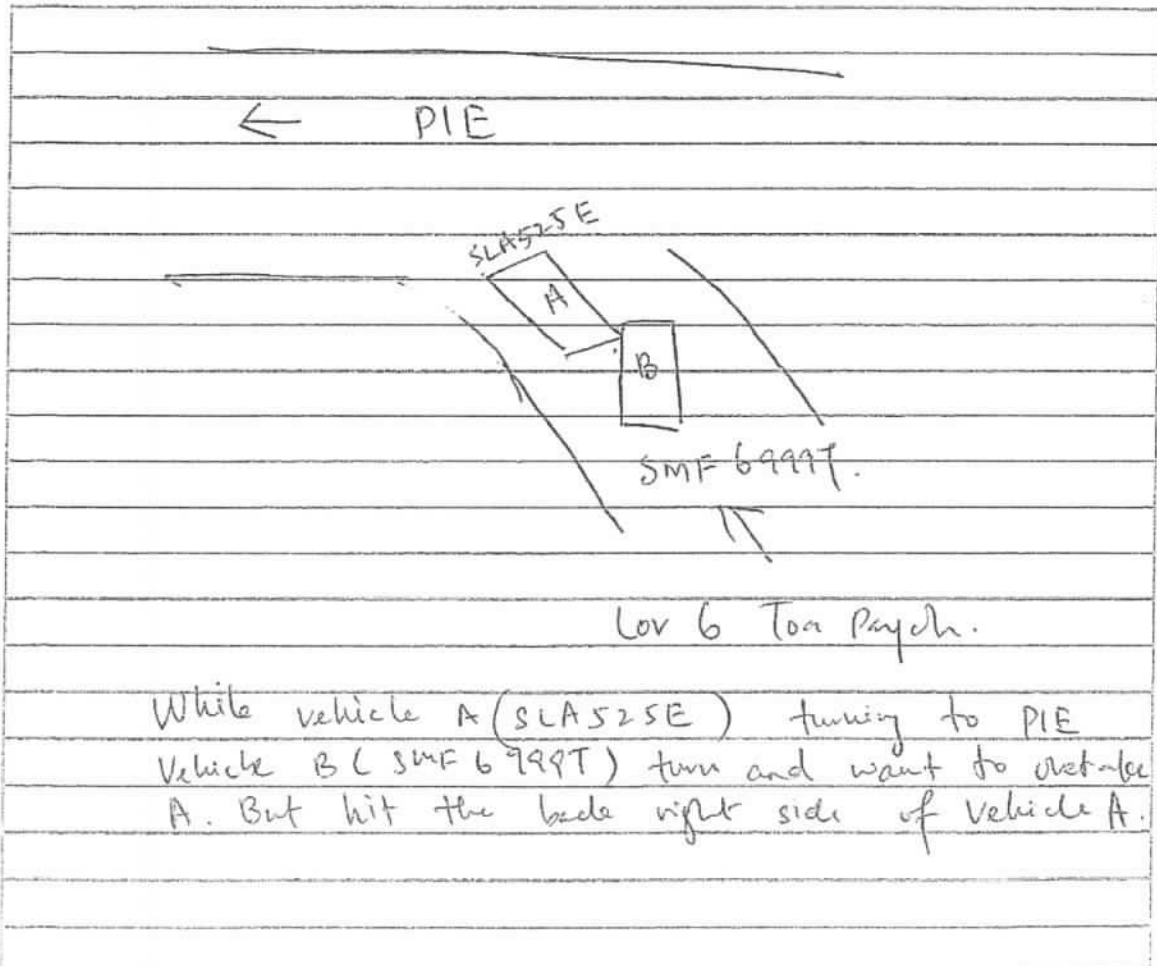 ← PIE
SLA525E
A
B
SMF 6999T.
Lor 6 Toa Payoh.
While vehicle A (SLA525E) turning to PIE
Vehicle B (SMF 6999T) turn and want to overtake
A. But hit the back right side of vehicle A.